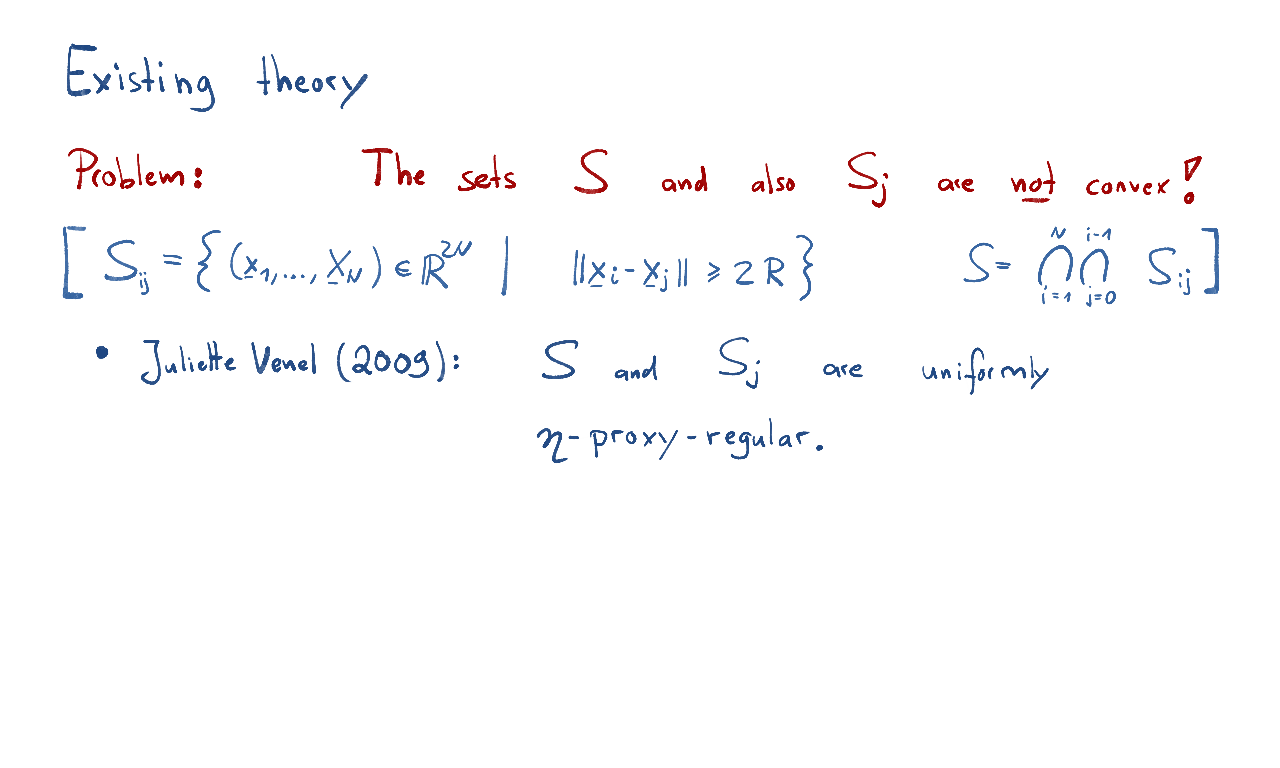 Existing theory
Problem: The sets S and also Sj are not convex!
[ Sij = { (x1,..., XN) ∈ ℝ^2N | ||xi - xj|| ≥ 2R } S = ⋂_{i=1}^{N} ⋂_{j=0}^{i-1} Sij ]
• Juliette Venel (2009): S and Sj are uniformly
η-proxy-regular.